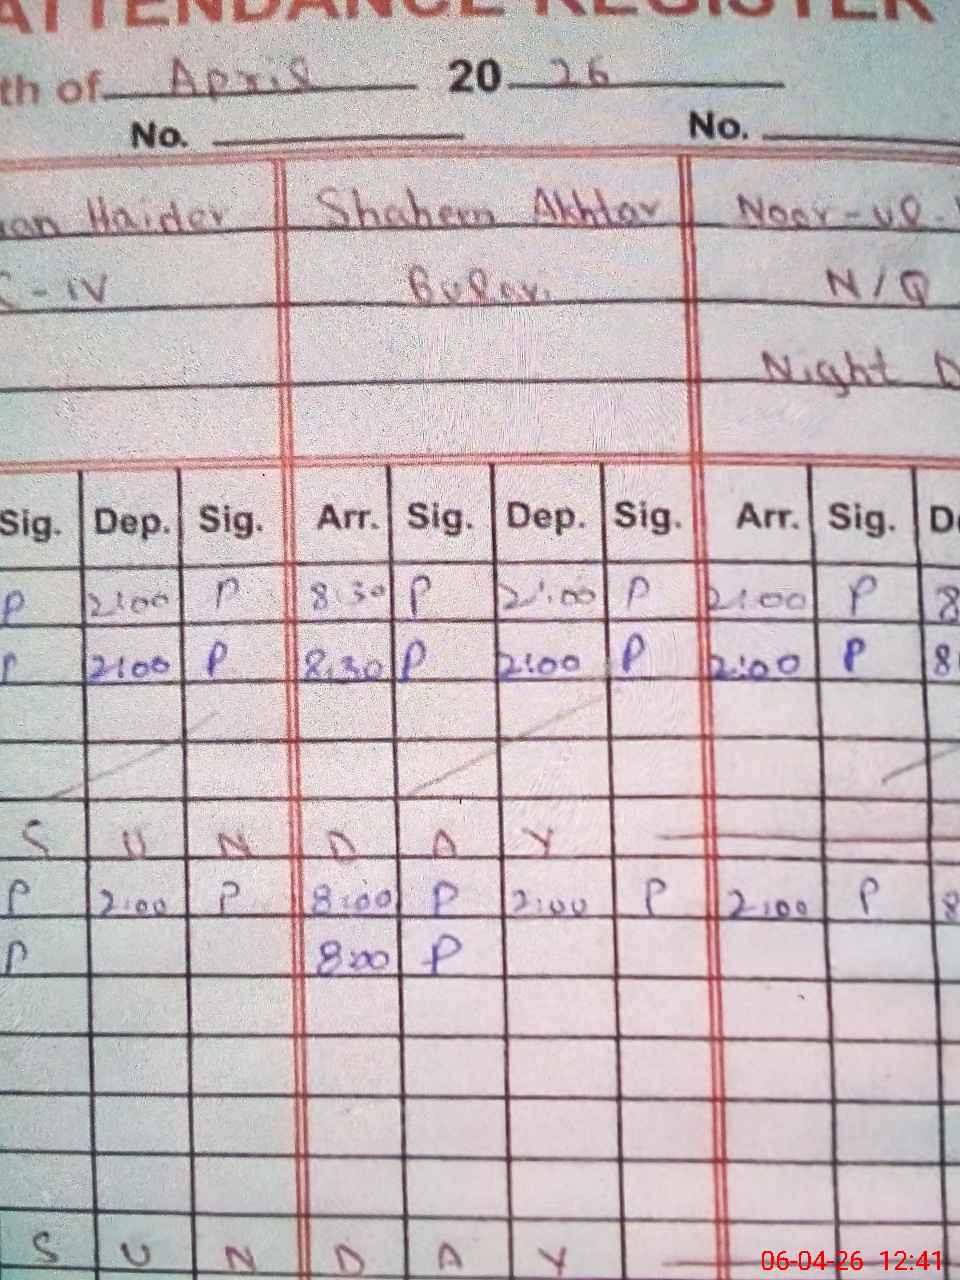 ATTENDANCE REGISTER
th of April 20 26
No. No.
Haider Shahem Akhtar Noor-ul-
C-IV N/Q
Night D
Sig. Dep. Sig. Arr. Sig. Dep. Sig. Arr. Sig. De
P 2:00 P 8:30 P 2:00 P 2:00 P 8
P 2:00 P 8:30 P 2:00 P 2:00 P 8
S U N D A Y
P 2:00 P 8:00 P 2:00 P 2:00 P 8
P 8:00 P
S U N D A Y
06-04-26 12:41